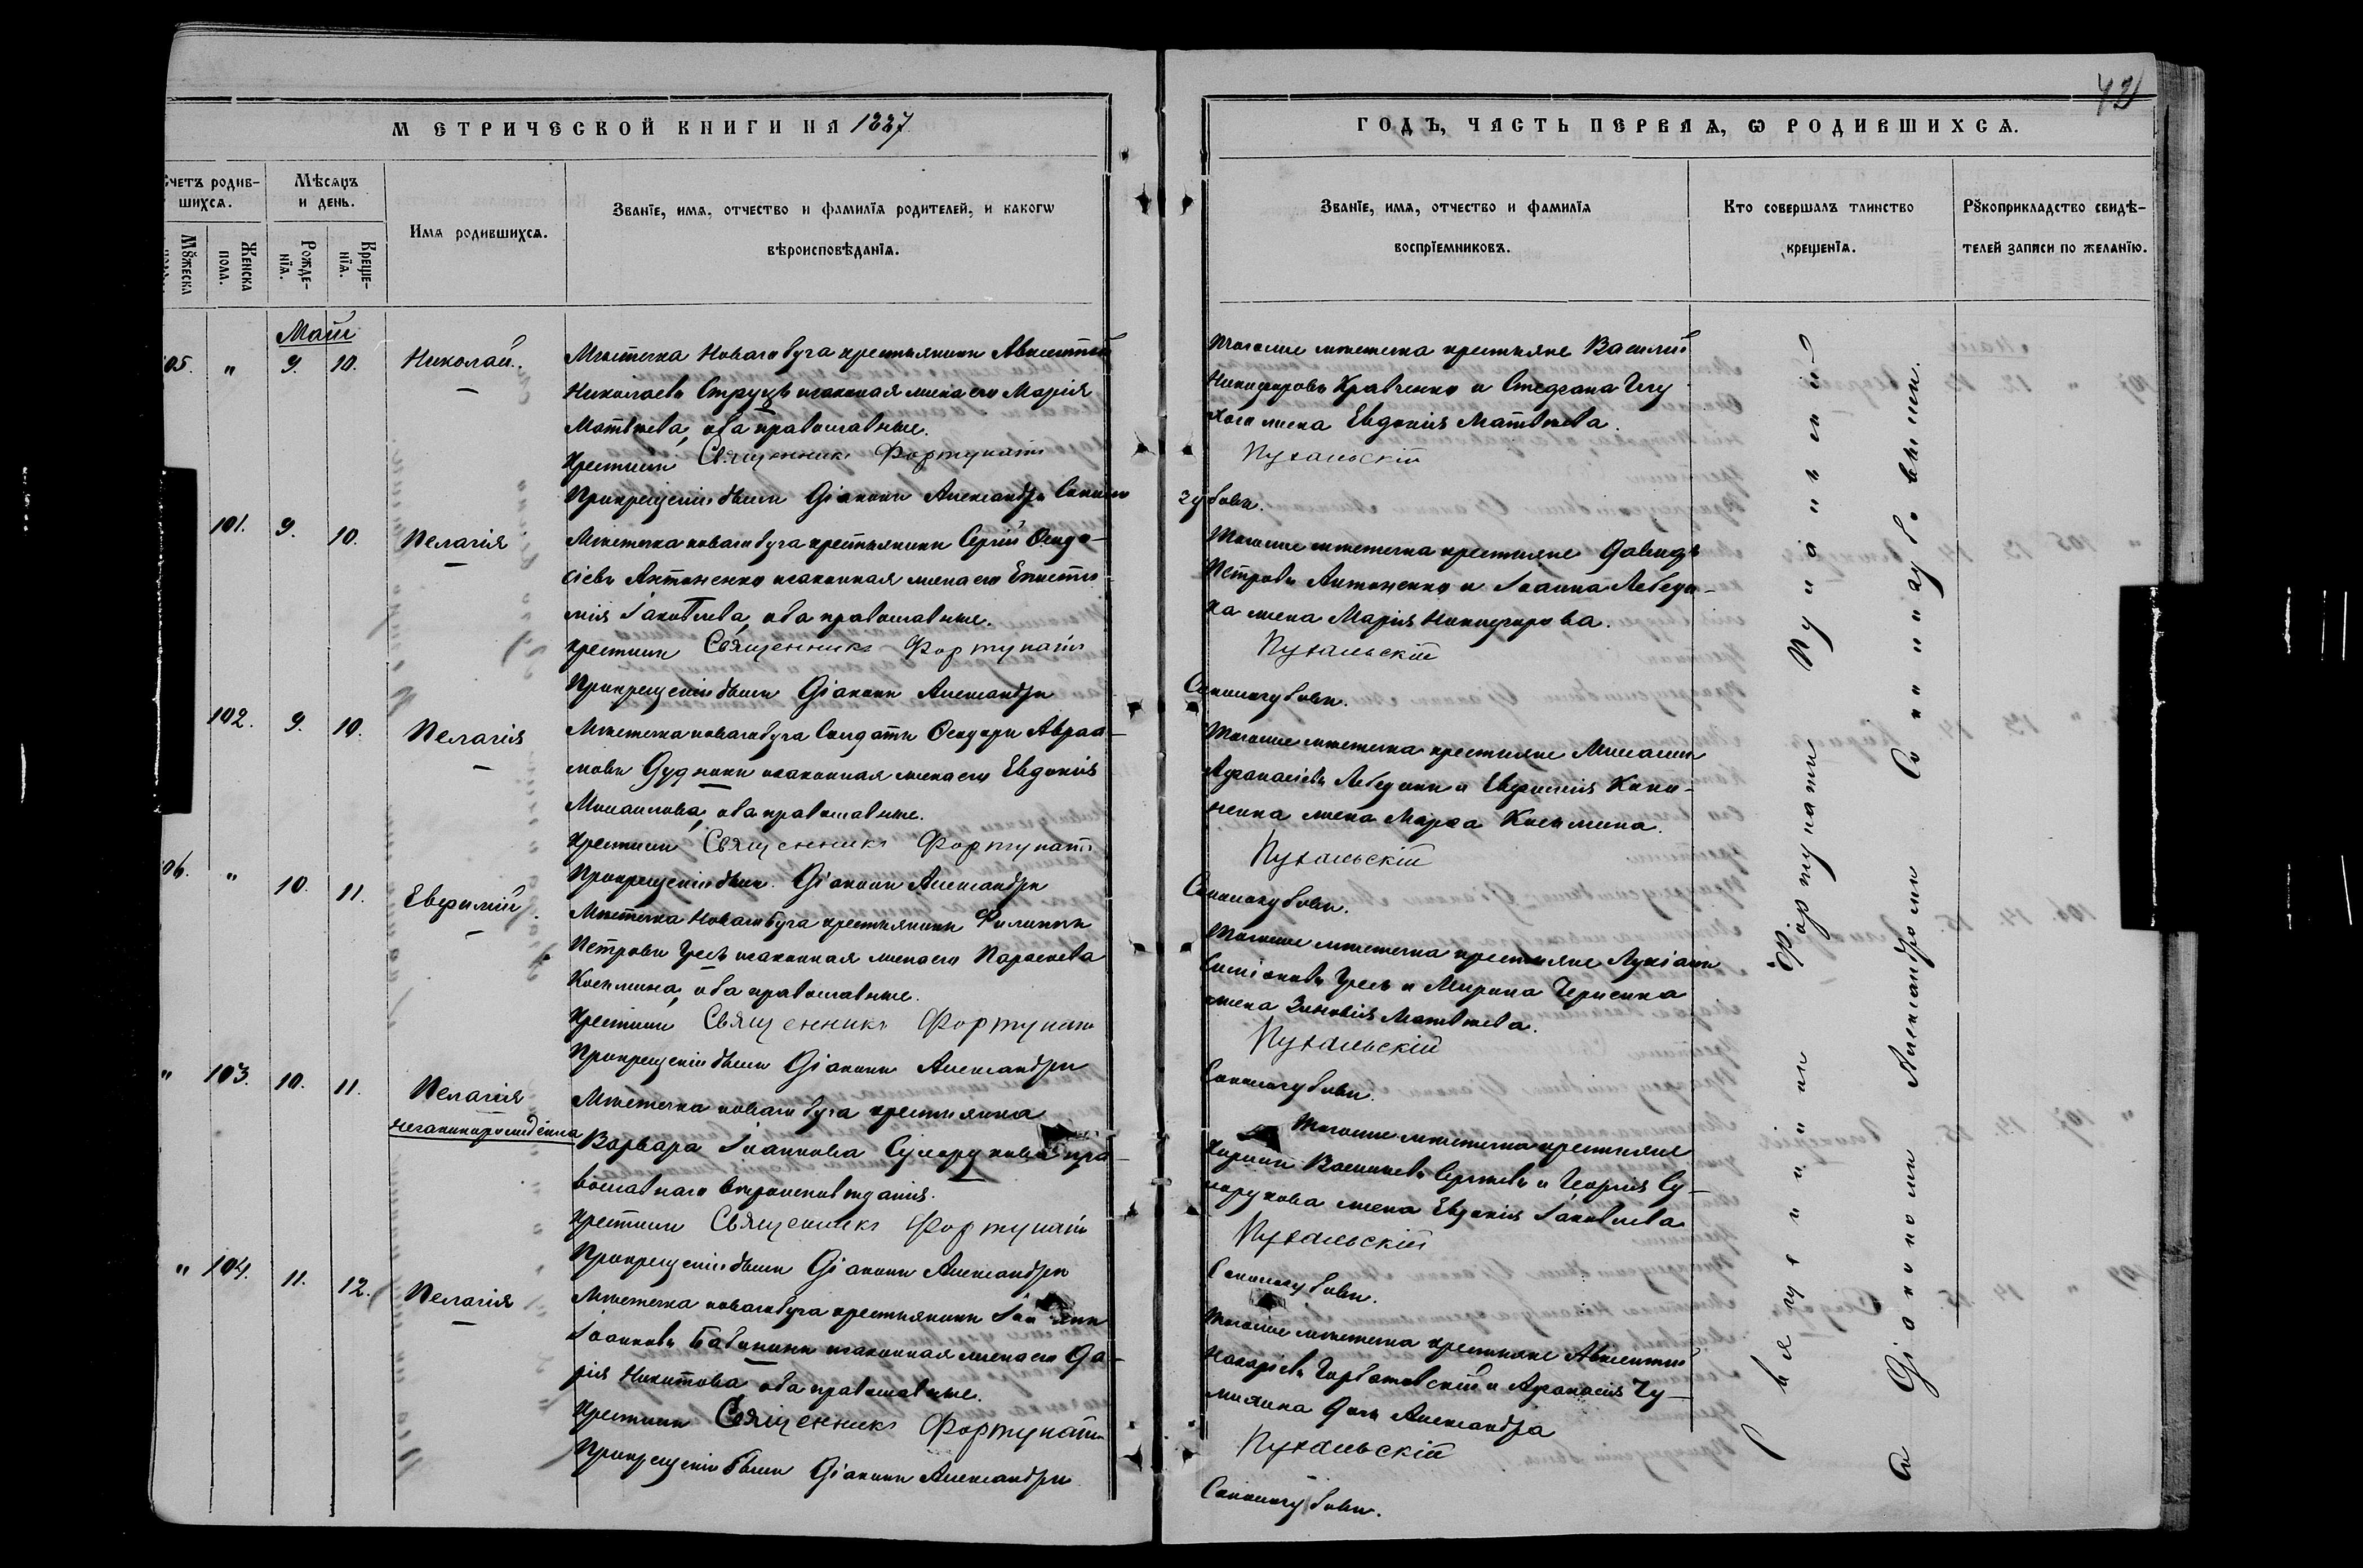 42
МЕТРИЧЕСКОЙ КНИГИ НА 1887
ГОДЪ, ЧАСТЬ ПЕРВАЯ, Ѡ РОДИВШИХСѦ.
Счетъ родив-
шихсѧ.
Мѣсѧцъ
и день.
Мꙋжеска
Женска
пола.
Рожде-
нїѧ.
Креще-
нїѧ.
Имѧ родившихсѧ.
Званїе, имѧ, отчество и фамилїѧ родителей, и какогѡ
вѣроисповѣданїѧ.
Званїе, имѧ, отчество и фамилїѧ
воспрїемниковъ.
Кто совершалъ таинство
крещенїѧ.
Рꙋкоприкладство свидѣ-
телей записи по желанїю.
Маій
105. " 9. 10. Николай.
Мѣстечка Новагобуга крестьянинъ Авксентій
Николаевъ Струцъ изаконная жена его Марія
Матвѣева, оба православные.
Крестилъ Священникъ Фортунатъ
Прикрещеніи былъ Діаконъ Александръ Соколо
Тогоже мѣстечка крестьяне Василій
Никифоровъ Кравченко и Стефана
жена Евдокія Матвѣева.
Пухальскій
зубовъ.
101. 9. 10. Пелагія
Мѣстечка новагобуга крестьянинъ Сергій Ѳеодо-
сіевъ Антоненко изаконная жена его Еписти
мія Іаковлева, оба православные.
Крестилъ Священникъ Фортунатъ
Прикрещеніи былъ Діаконъ Александръ
Тогоже мѣстечка крестьяне Давидъ
Петровъ Антоненко и Іоанна Лебеди-
ка жена Марія Никифорова.
Пухальскій
Сокологубовъ.
102. 9. 10. Пелагія
Мѣстечка новагобуга Солдатъ Ѳеодоръ Авраа-
мовъ Дудникъ изаконная жена его Евдокія
Михаилова, оба православные.
Крестилъ Священникъ Фортунатъ
Прикрещеніи былъ Діаконъ Александръ
Тогоже мѣстечка крестьяне Михаилъ
Афанасіевъ Лебедикъ и Евфимія Коно-
ненка жена Марѳа Косьмина.
Пухальскій
Сокологубовъ.
106. " 10. 11. Евфимій.
Мѣстечка Новагобуга крестьянинъ Филиппъ
Петровъ Усъ изаконная жена его Параскева
Косьмина, оба православные.
Крестилъ Священникъ Фортунатъ
Прикрещеніи былъ Діаконъ Александръ
Тогоже мѣстечка крестьяне Лукіанъ
Симіоновъ Усъ и Мирона
жена Зиновія Матвѣева.
Пухальскій
Сокологубовъ.
" 103. 10. 11. Пелагія
незаконнорожденна
Мѣстечка новагобуга крестьянка
Варвара Іоаннова Сухорукова пра-
вославнаго вѣроисповѣданія.
Крестилъ Священникъ Фортунатъ
Прикрещеніи былъ Діаконъ Александръ
Тогоже мѣстечка крестьяне
Василіевъ Сергѣевъ и Георгія Су-
хорукова жена Евдокія Іаковлева
Пухальскій
Сокологубовъ.
" 104. 11. 12. Пелагія
Мѣстечка новагобуга крестьянинъ Іоаннъ
Іоанновъ Бабичинъ изаконная жена его Да-
рія Никитова, оба православные.
Крестилъ Священникъ Фортунатъ
Прикрещеніи былъ Діаконъ Александръ
Тогоже мѣстечка крестьяне Авксентій
Назаріевъ Горбатовскій и Афанасія Чу-
дочь Александра
Пухальскій
Сокологубовъ.
Священникъ Фортунатъ Пухальскій
Съ Діакономъ Александромъ Сокологубовымъ.